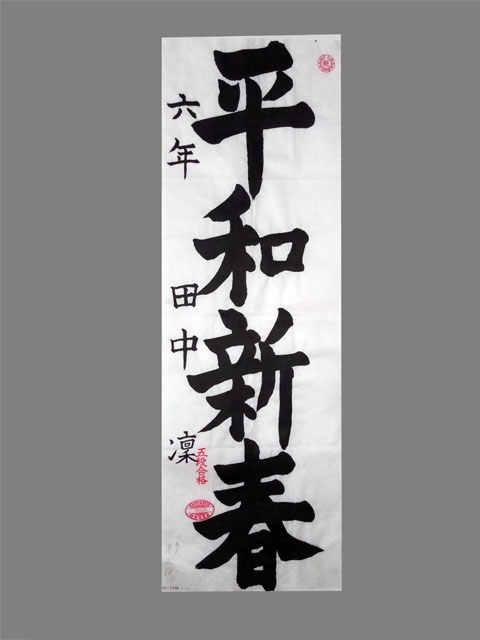 平和新春
六年 田中 凜
五段合格